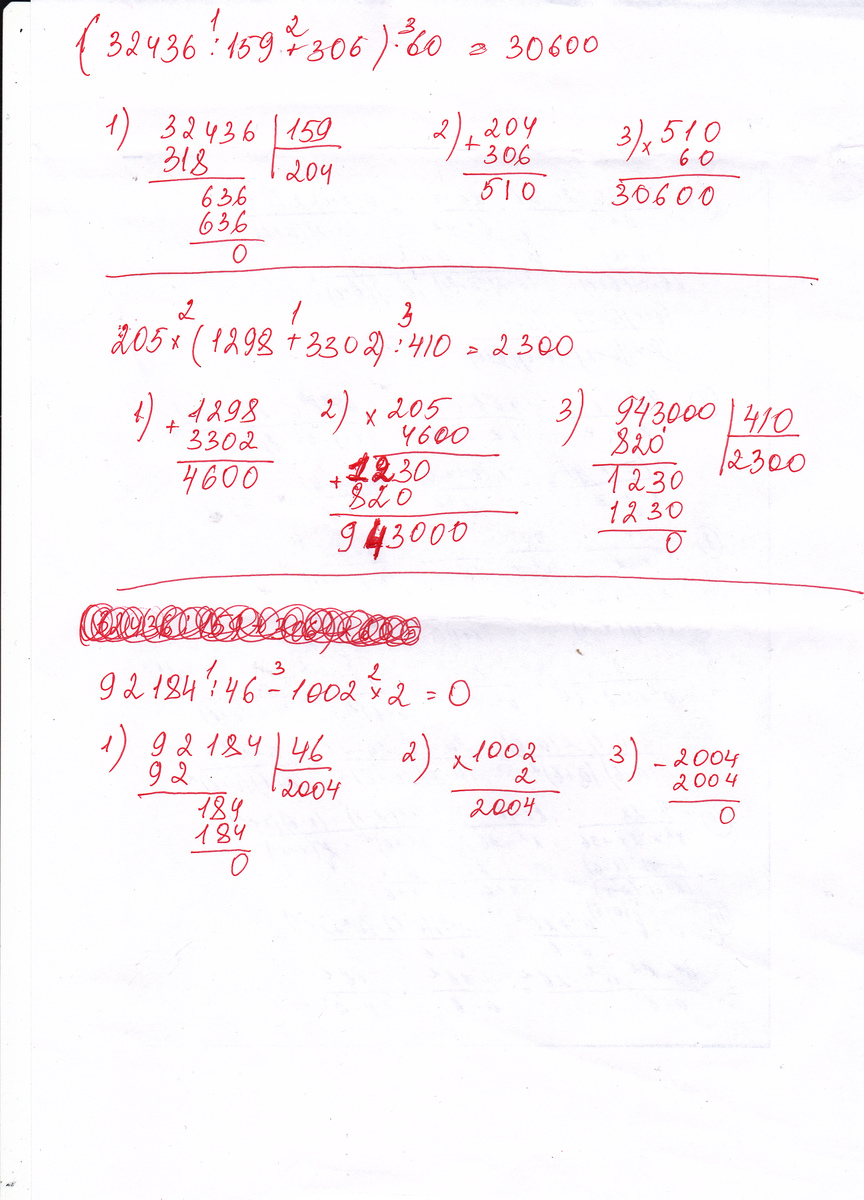 (32436 : 159 + 306) · 60 = 30600
1 2 3
1) 32436 | 159
318 204
636
636
0
2) + 204
306
510
3) × 510
60
30600
205 × (1298 + 3302) : 410 = 2300
2 1 3
1) + 1298
3302
4600
2) × 205
4600
+ 1230
820
943000
3) 943000 | 410
820 2300
1230
1230
0
92184 : 46 - 1002 × 2 = 0
1 3 2
1) 92184 | 46
92 2004
184
184
0
2) × 1002
2
2004
3) - 2004
2004
0